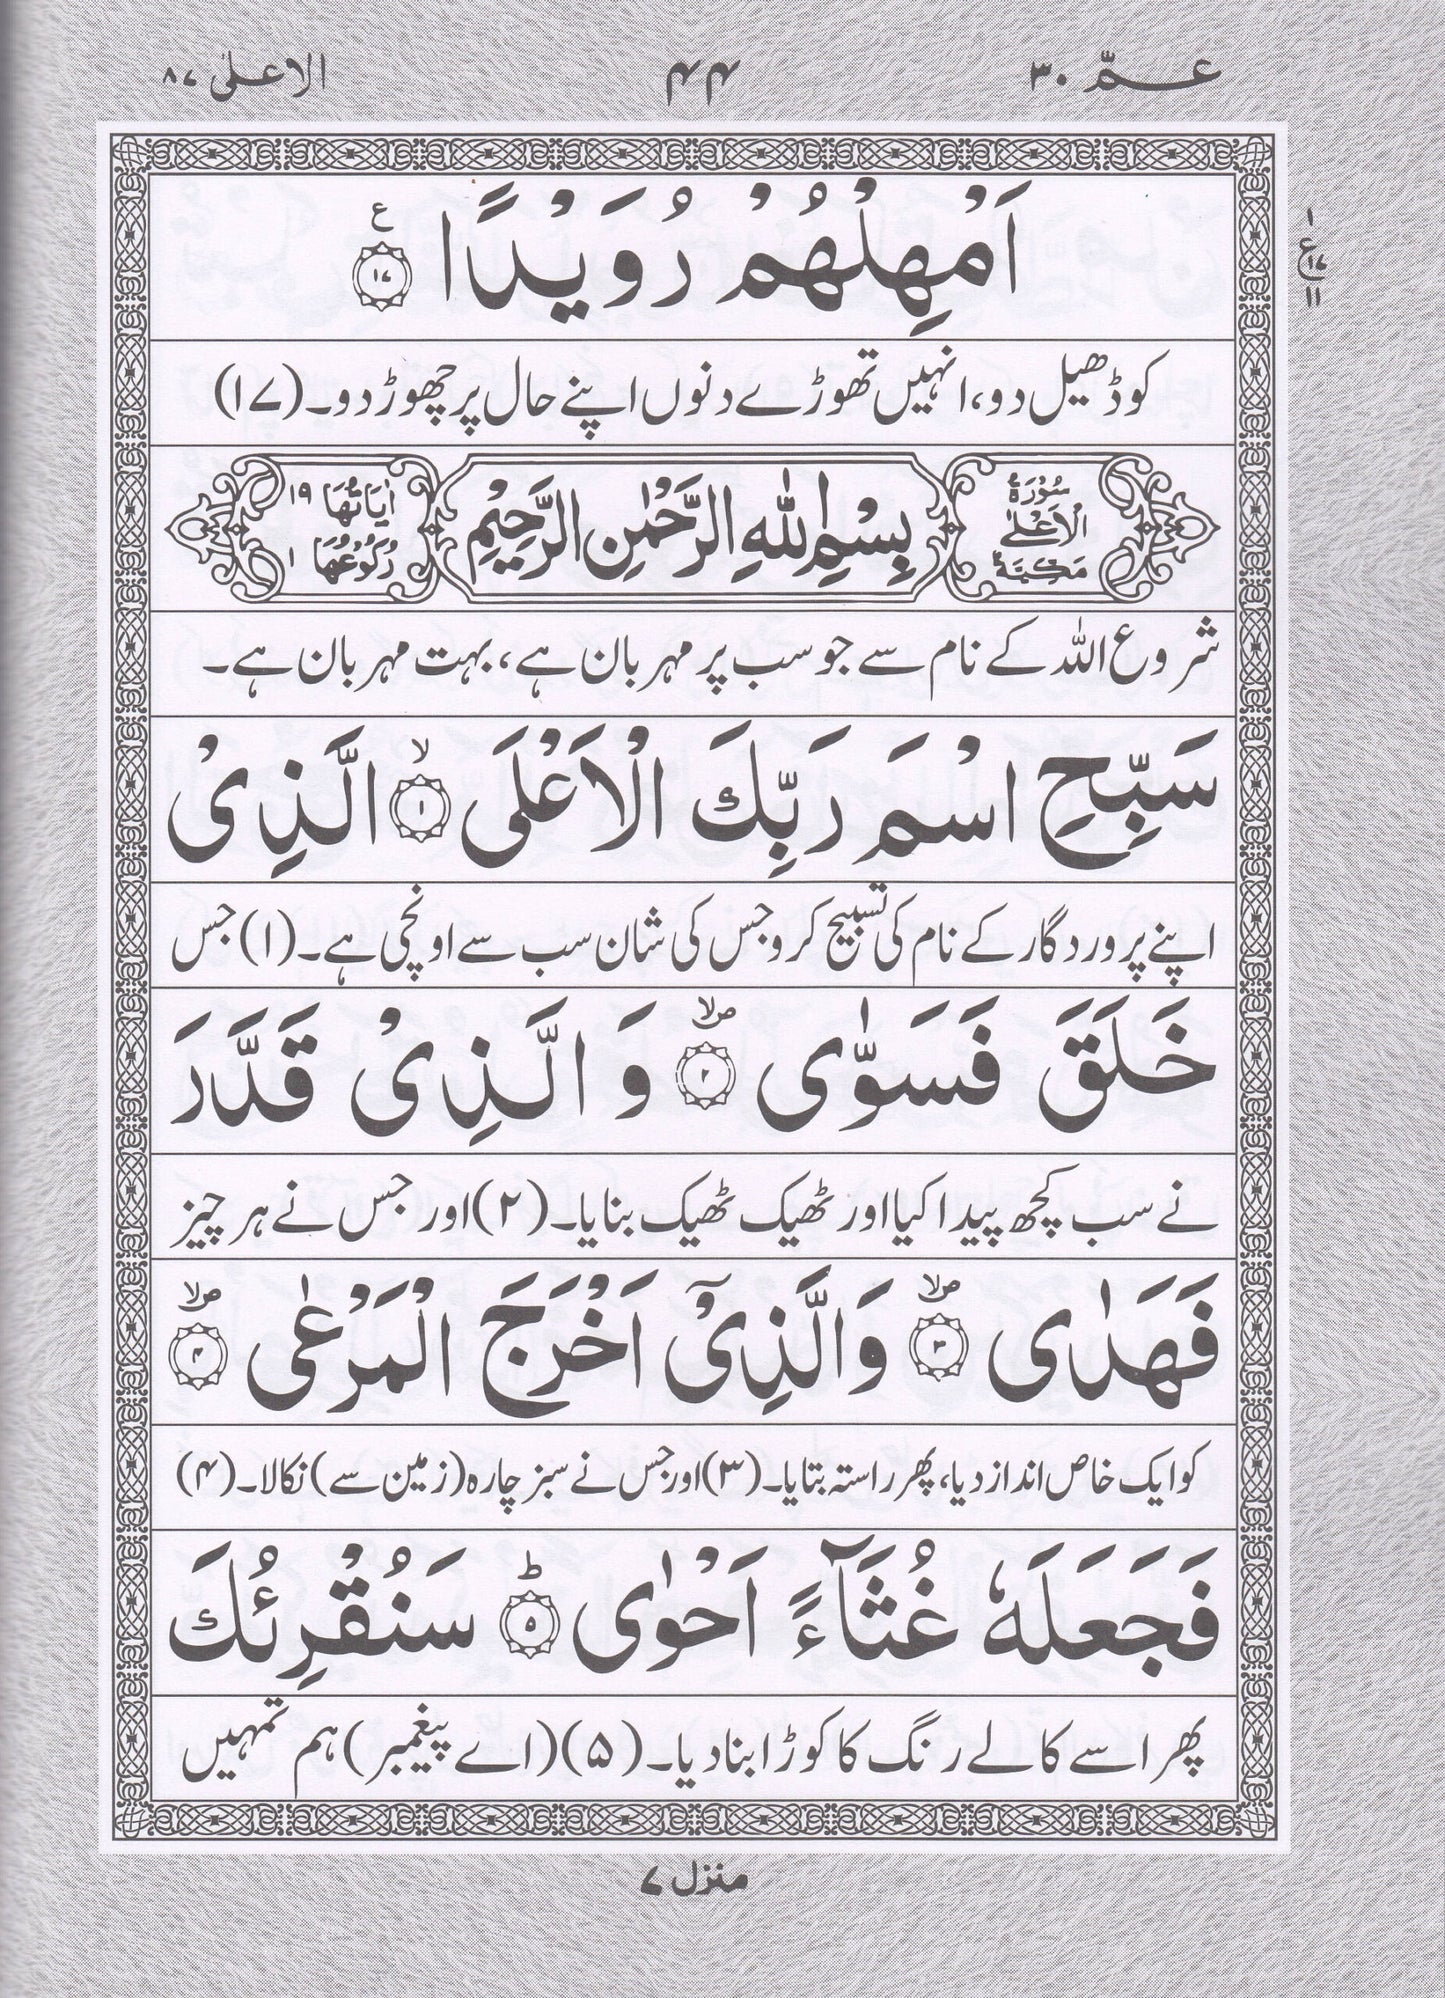 عـــمّ ۳۰
۴۴
الاعلیٰ ۸۷
اَمْهِلْهُمْ رُوَيْدًا ۱۷ ع
ع ۱ ۱۷ ۱۱
کو ڈھیل دو، انہیں تھوڑے دنوں اپنے حال پر چھوڑ دو۔ (۱۷)
سُوْرَةُ الْاَعْلٰى مَكِّيَّةٌ
بِسْمِ اللّٰهِ الرَّحْمٰنِ الرَّحِيْمِ
اٰيَاتُهَا ۱۹ رُكُوْعُهَا ۱
شروع اللہ کے نام سے جو سب پر مہربان ہے، بہت مہربان ہے۔
سَبِّحِ اسْمَ رَبِّكَ الْاَعْلَى ۱ لا الَّذِىْ
اپنے پروردگار کے نام کی تسبیح کرو جس کی شان سب سے اونچی ہے۔ (۱) جس
خَلَقَ فَسَوّٰى ۲ صلا وَ الَّذِىْ قَدَّرَ
نے سب کچھ پیدا کیا اور ٹھیک ٹھیک بنایا۔ (۲) اور جس نے ہر چیز
فَهَدٰى ۳ صلا وَالَّذِىْۤ اَخْرَجَ الْمَرْعٰى ۴ صلا
کو ایک خاص انداز دیا، پھر راستہ بتایا۔ (۳) اور جس نے سبز چارہ (زمین سے) نکالا۔ (۴)
فَجَعَلَهٗ غُثَآءً اَحْوٰى ۵ ط سَنُقْرِئُكَ
پھر اسے کالے رنگ کا کوڑا بنا دیا۔ (۵) (اے پیغمبر) ہم تمہیں
منزل ۷